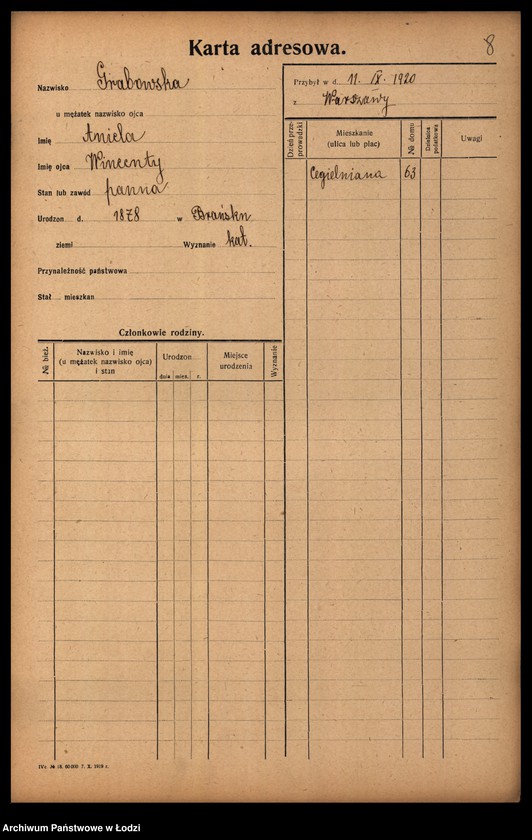 Karta adresowa.
8
Nazwisko Grabowska
u mężatek nazwisko ojca
Imię Aniela
Imię ojca Wincenty
Stan lub zawód panna
Urodzon d. 1878 w Brańsku
ziemi Wyznanie kat.
Przynależność państwowa
Stał mieszkan
Członkowie rodziny.
№ bież.
Nazwisko i imię
(u mężatek nazwisko ojca)
i stan
Urodzon
dnia mies. r.
Miejsce
urodzenia
Wyznanie
Przybył w d 11. IX. 1920
z Warszawy
Dzień prze-
prowadzki
Mieszkanie
(ulica lub plac)
№ domu
Dzielnica
podatkowa
Uwagi
Cegielniana 63
Archiwum Państwowe w Łodzi